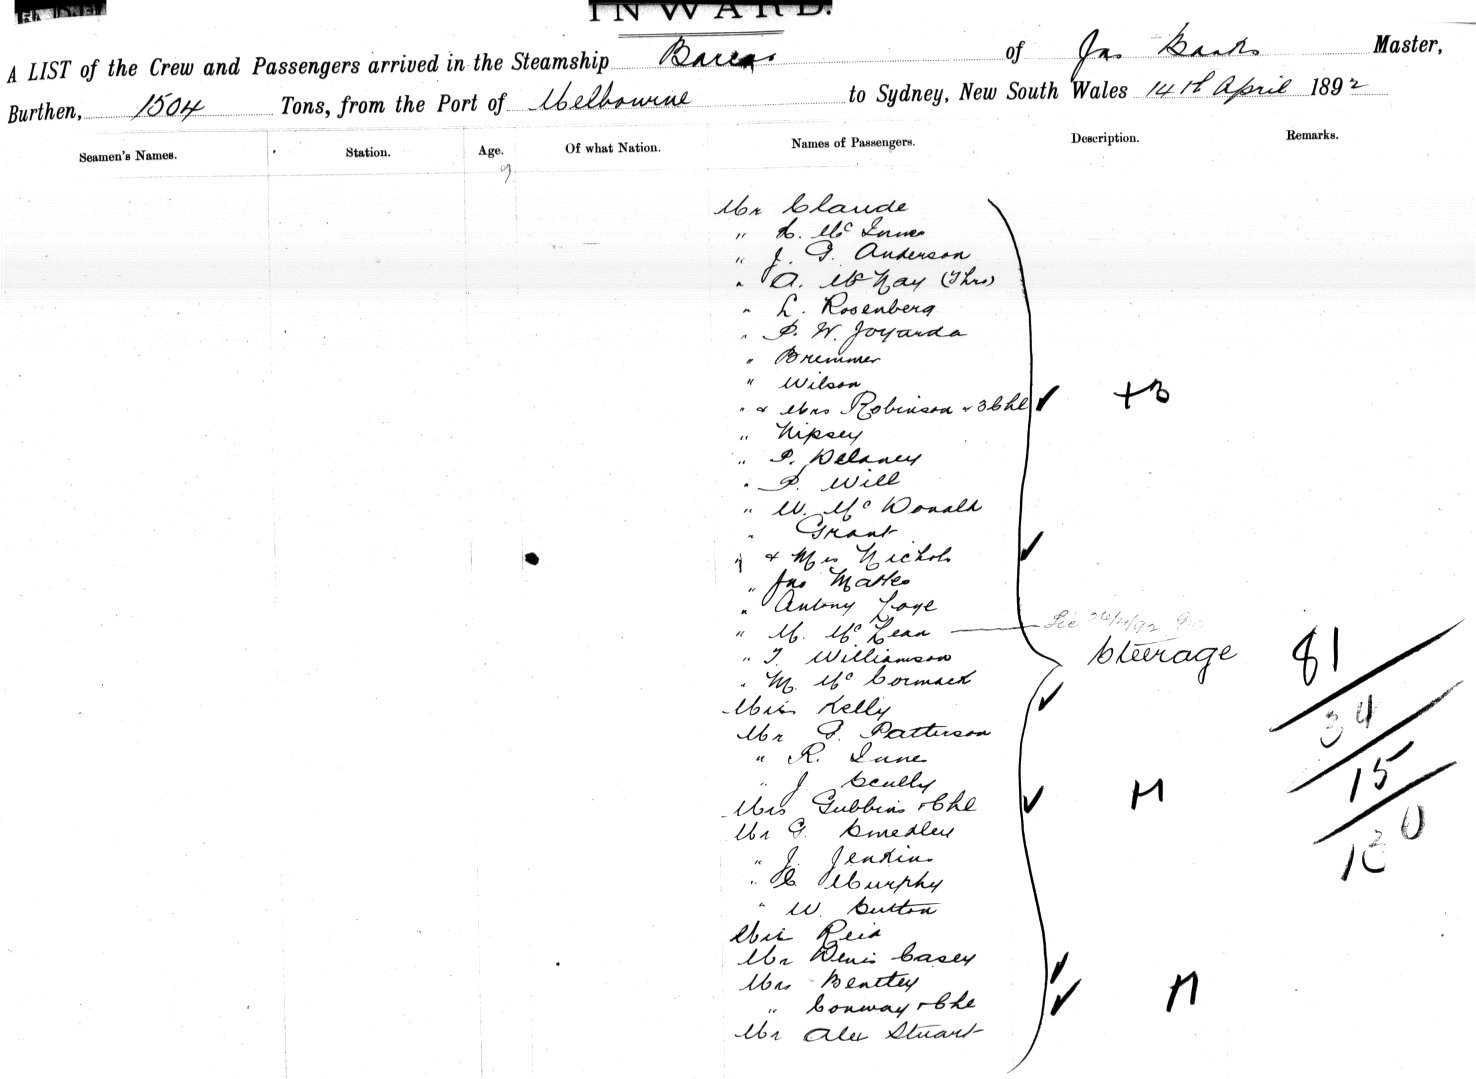 INWARD.
A LIST of the Crew and Passengers arrived in the Steamship Barcoo of Jas Banks Master,
Burthen, 1504 Tons, from the Port of Melbourne to Sydney, New South Wales 14th April 1892
Seamen's Names. Station. Age. Of what Nation. Names of Passengers. Description. Remarks.
Mr Claude
" McInnes
" J. G. Anderson
" A. McNay (Thro)
" L. Rosenberg
" P. W. Joyarda
" Bremmer
" Wilson
" & Mrs Robinson & 3 Chl + 3
" Nipsey
" P. Delaney
" P. Will
" W. McDonald
" Grant
" & Mrs Nichols
" Jas Matte
" Antony Loye
" M. McLean
" T. Williamson Steerage 81
" M. McCormack
Miss Kelly
Mr G. Patterson 34
" R. Innes
" J Scully 15
Mrs Gubbins & Chl M
Mr G. Smedley 130
" J. Jenkins
" C Murphy
" W. Sutton
Miss Reid
Mr Denis Casey
Mrs Bentley M
" Conway & Chl
Mr Alex Stuart